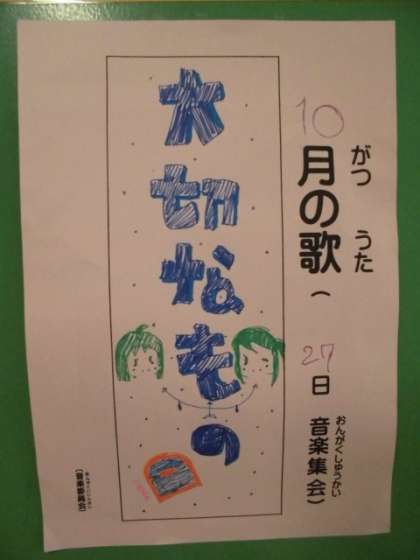 10月の歌(27日 音楽集会)
がつ うた
おんがくしゅうかい
大切なもの
(音楽委員会)